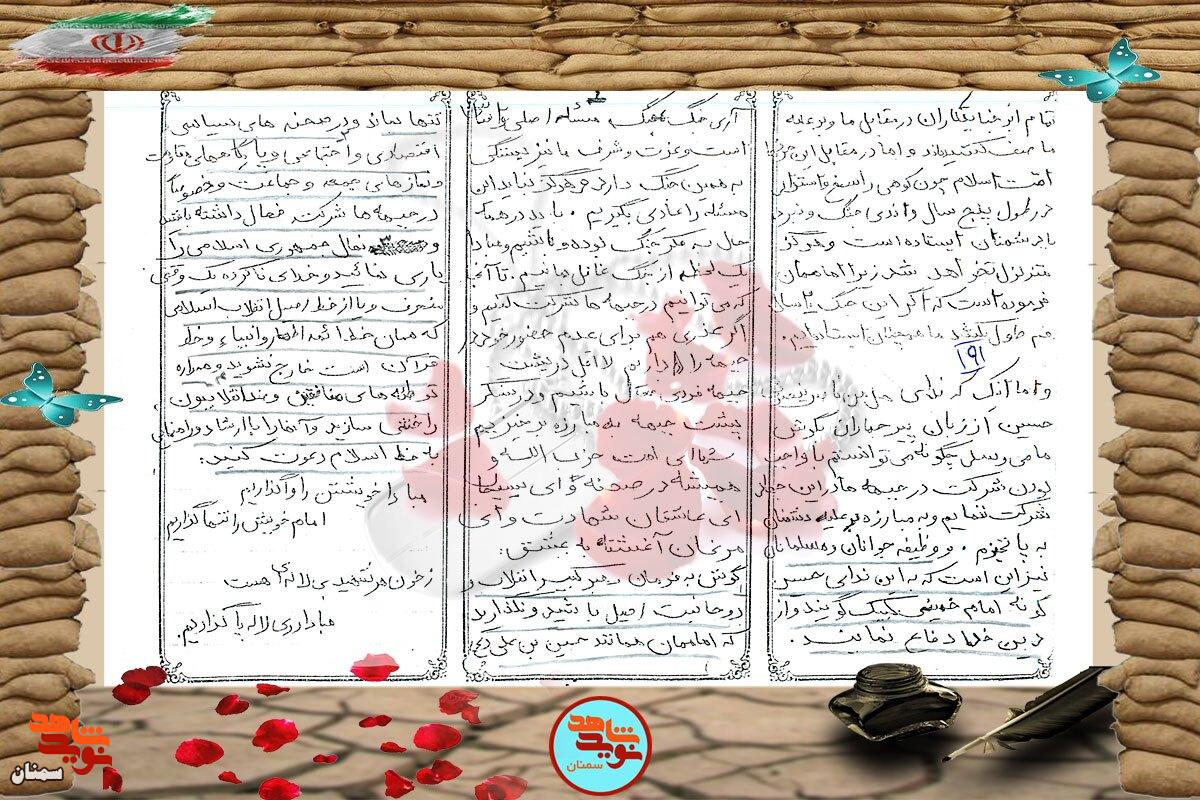 تمام این جنایتکاران در مقابل ما و بر علیه
ما صف کشیده‌اند و اما در مقابل این
امت اسلام چون کوهی راسخ و استوار
در طول پنج سال و اندی جنگ و نبرد
با دشمنان ایستاده است و هرگز
متزلزل نخواهد شد زیرا اماممان
فرموده است که اگر این جنگ ۲۰ سال
هم طول بکشد ما همچنان ایستاده‌ایم.
۹۱
و اما آنگ که ندای هل من ناصر ینصرنی
حسین از زبان پیر جماران بگوش
ما می رسد چگونه می توانستم با واجب
بودن شرکت در جبهه ها در این جهاد
شرکت ننمایم و به مبارزه بر علیه دشمنان
به پا نخیزم. و وظیفه جوانان و مسلمانان
نیز این است که به این ندای حسین
گونه امام خمینی لبیک گویند و از
دین خدا دفاع نمایند.
آری جنگ جنگ مسئله اصلی ما
است و عزت و شرف ما نیز بستگی
به همین جنگ دارد هرگز نباید این
مسئله را عادی بگیریم. باید در همه
حال به فکر جنگ بوده و باشیم و مبادا
یک لحظه از جنگ غافل بمانیم. تا آنجا
که می توانیم در جبهه ها شرکت کنیم و
اگر عذری هم برای عدم حضور خود در
جبهه ها را داریم لااقل در پشت
جبهه فردی فعال باشیم و در سنگر
پشت جبهه به مبارزه برخیزیم
شمای امت حزب الله و
همیشه در صحنه و ای بسیجیها
ای عاشقان شهادت و ای
مرغان آغشته به عشق:
گوش به فرمان رهبر کبیر انقلاب و
روحانیت اصیل باشید و نگذارید
که اماممان همانند حسین بن علی (ع)
تنها بماند و در صحنه های سیاسی
اقتصادی و اجتماعی و پایگاههای مقاومت
و نمازهای جمعه و جماعت و خصوصاً
در جبهه ها شرکت فعال داشته باشید
و نهال جمهوری اسلامی را
یاری نمائید و خدای ناکرده یک وقتی
منحرف و یا از خط اصیل انقلاب اسلامی
که همان خط ائمه اطهار و انبیاء و خط
قرآن است خارج نشوید و همواره
توطئه های منافقین و ضد انقلابیون
را خنثی سازید و آنها را با ارشاد و راهنمایی
به خط اسلام دعوت کنید.
مباد خویشتن را واگذاریم
امام خویش را تنها گذاریم
ز خون هر شهیدی لاله ای هست
مبادا روی لاله پا گذاریم.
نوید شاهد
سمنان
نوید شاهد
سمنان